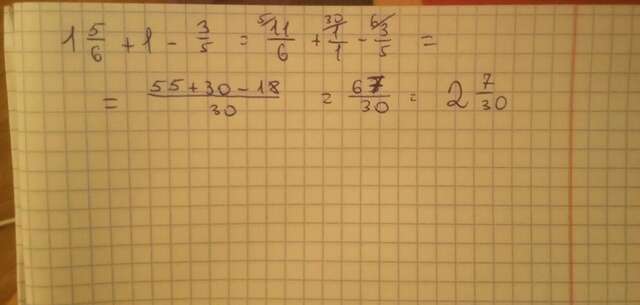 1 5/6 + 1 - 3/5 = 5/ 11/6 + 30/ 1/1 - 6/ 3/5 =
= 55+30-18/30 = 67/30 = 2 7/30